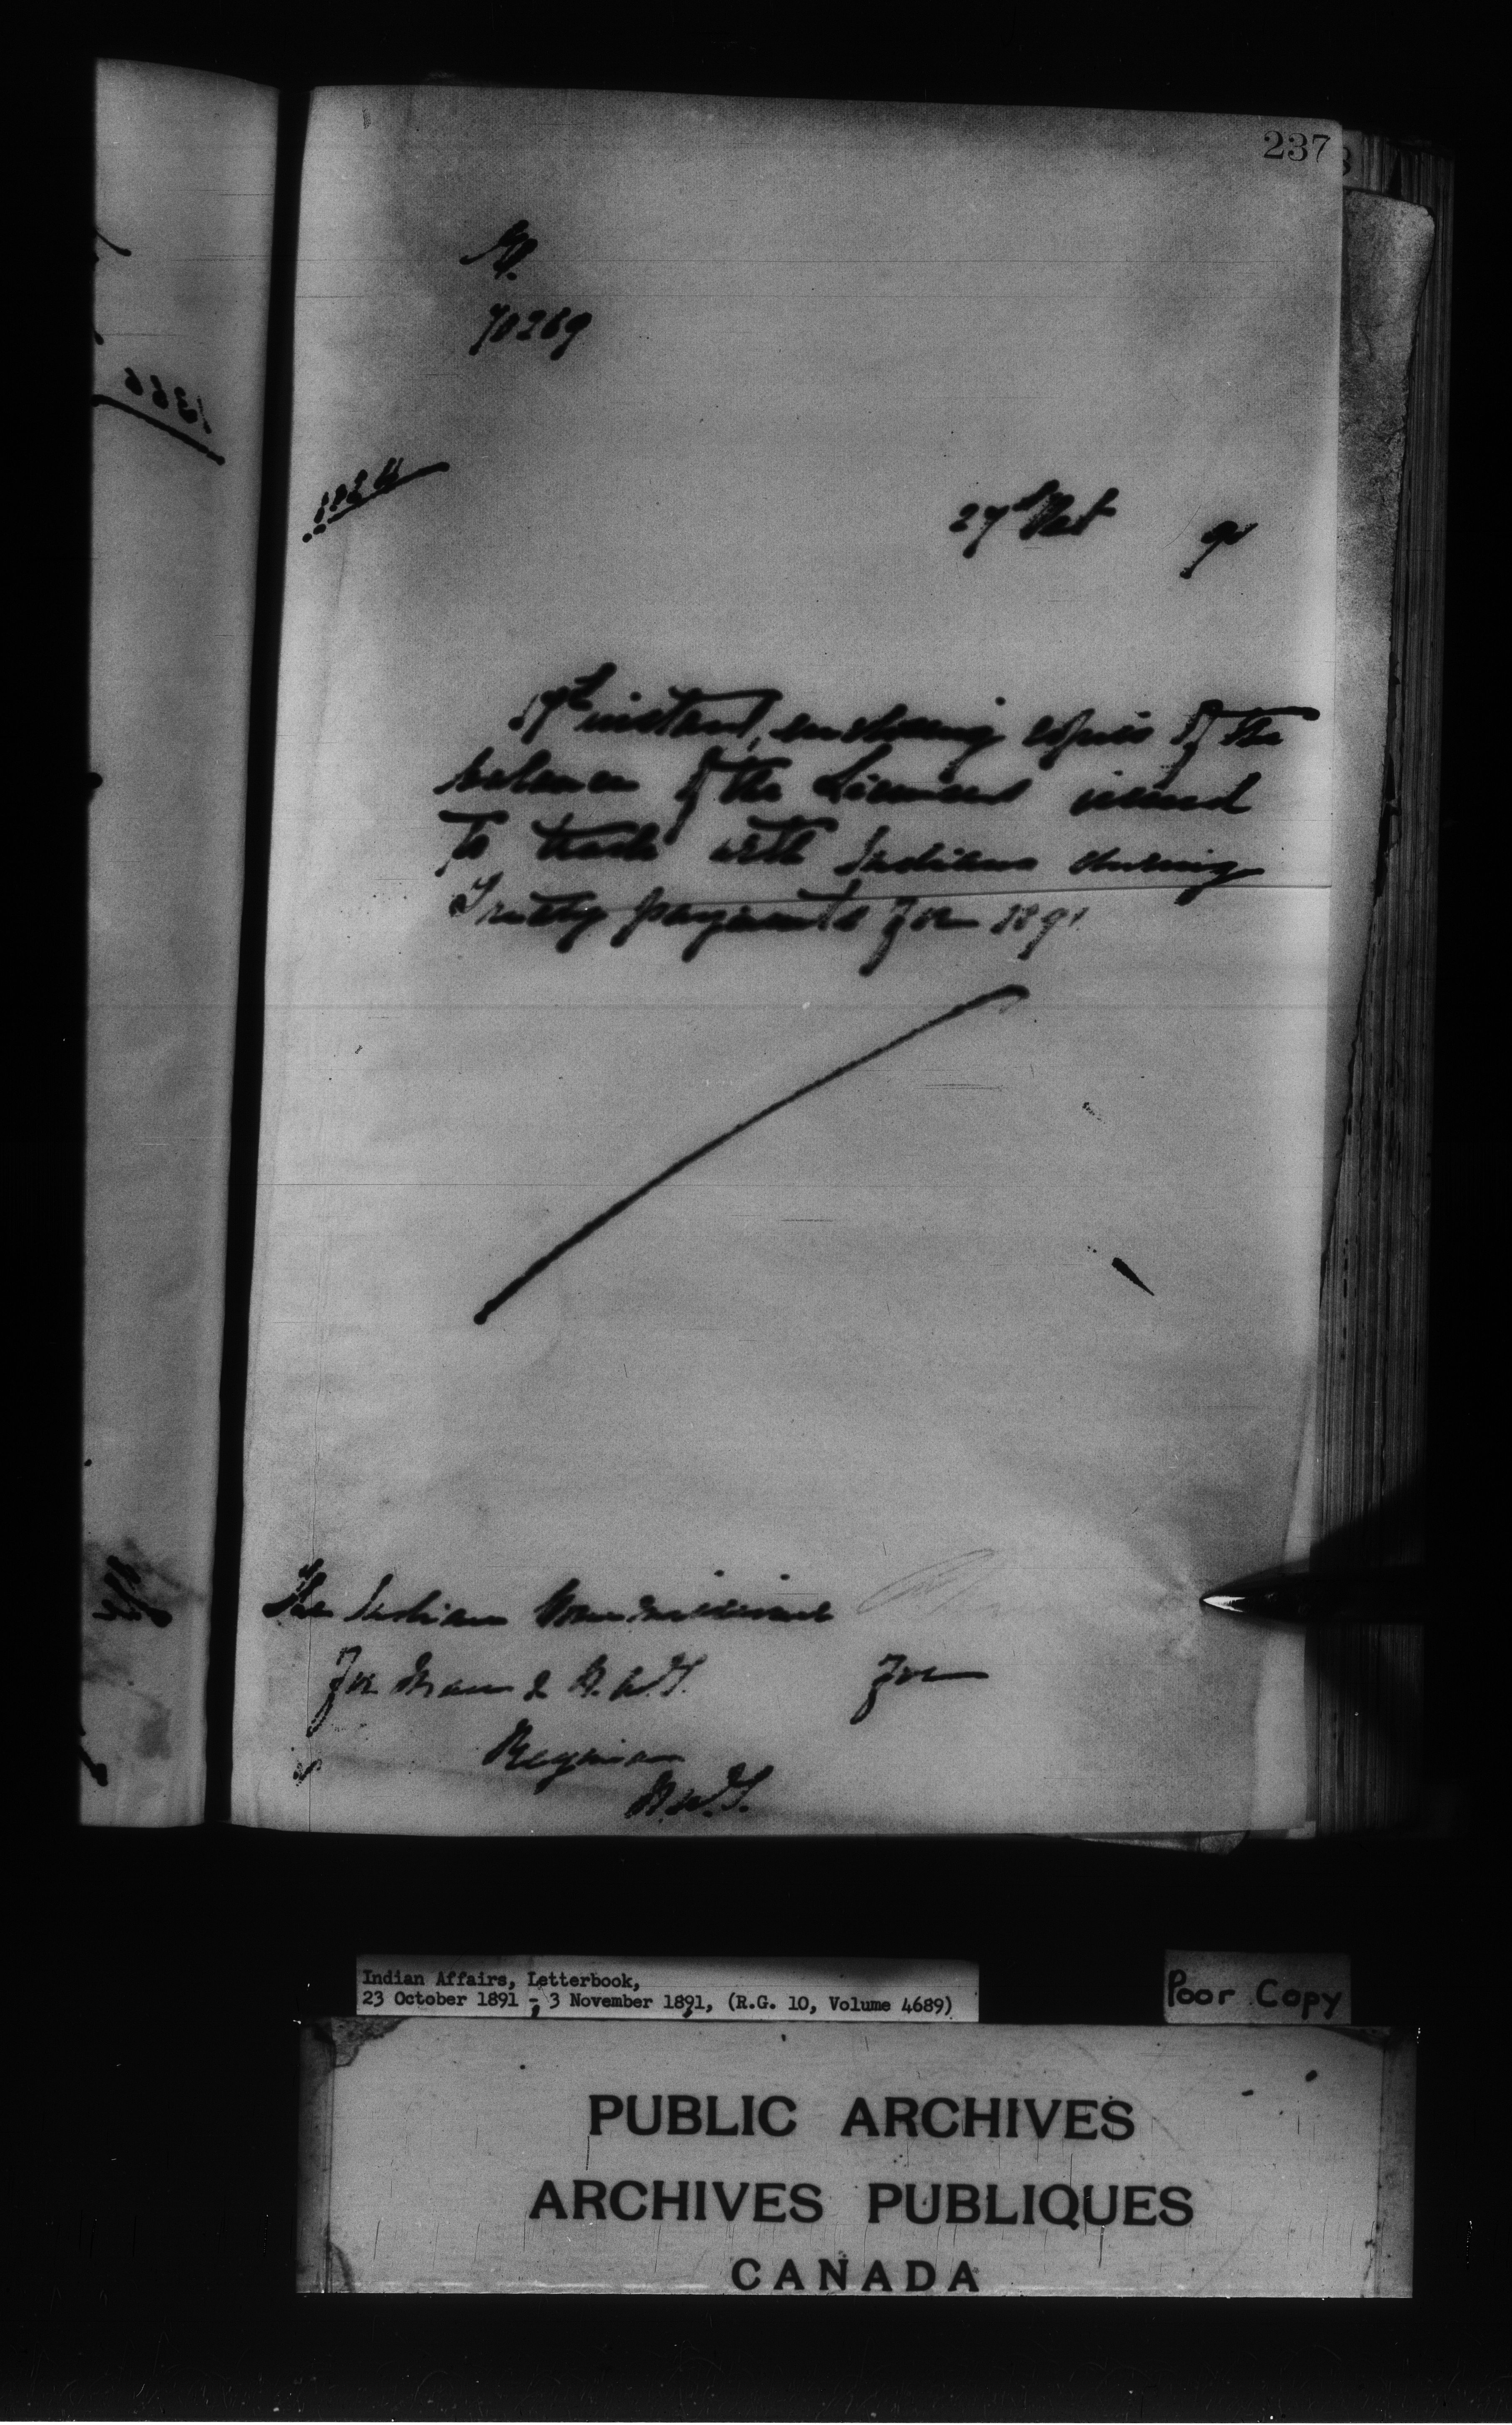 237
70269
27 Oct 91
instant, enclosing copies of the
balance of the Licenses issued
to trade with Indians during
Treaty payments for 1891
The Indian Commissioner
for Man & N.W.T.
for
Regina
N.W.T.
Indian Affairs, Letterbook,
23 October 1891 - 3 November 1891, (R.G. 10, Volume 4689)
Poor Copy
PUBLIC ARCHIVES
ARCHIVES PUBLIQUES
CANADA